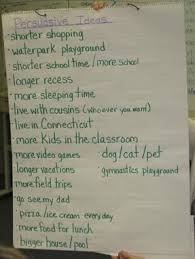 Persuasive Ideas
shorter shopping
waterpark playground
shorter school time / more school
longer recess
more sleeping time
live with cousins (Whoever you want)
live in Connecticut
more Kids in the classroom
more video games dog/cat/pet
longer vacations gymnastics playground
more field trips
go see my dad
pizza/ice cream everyday
more food for lunch
bigger house/pool